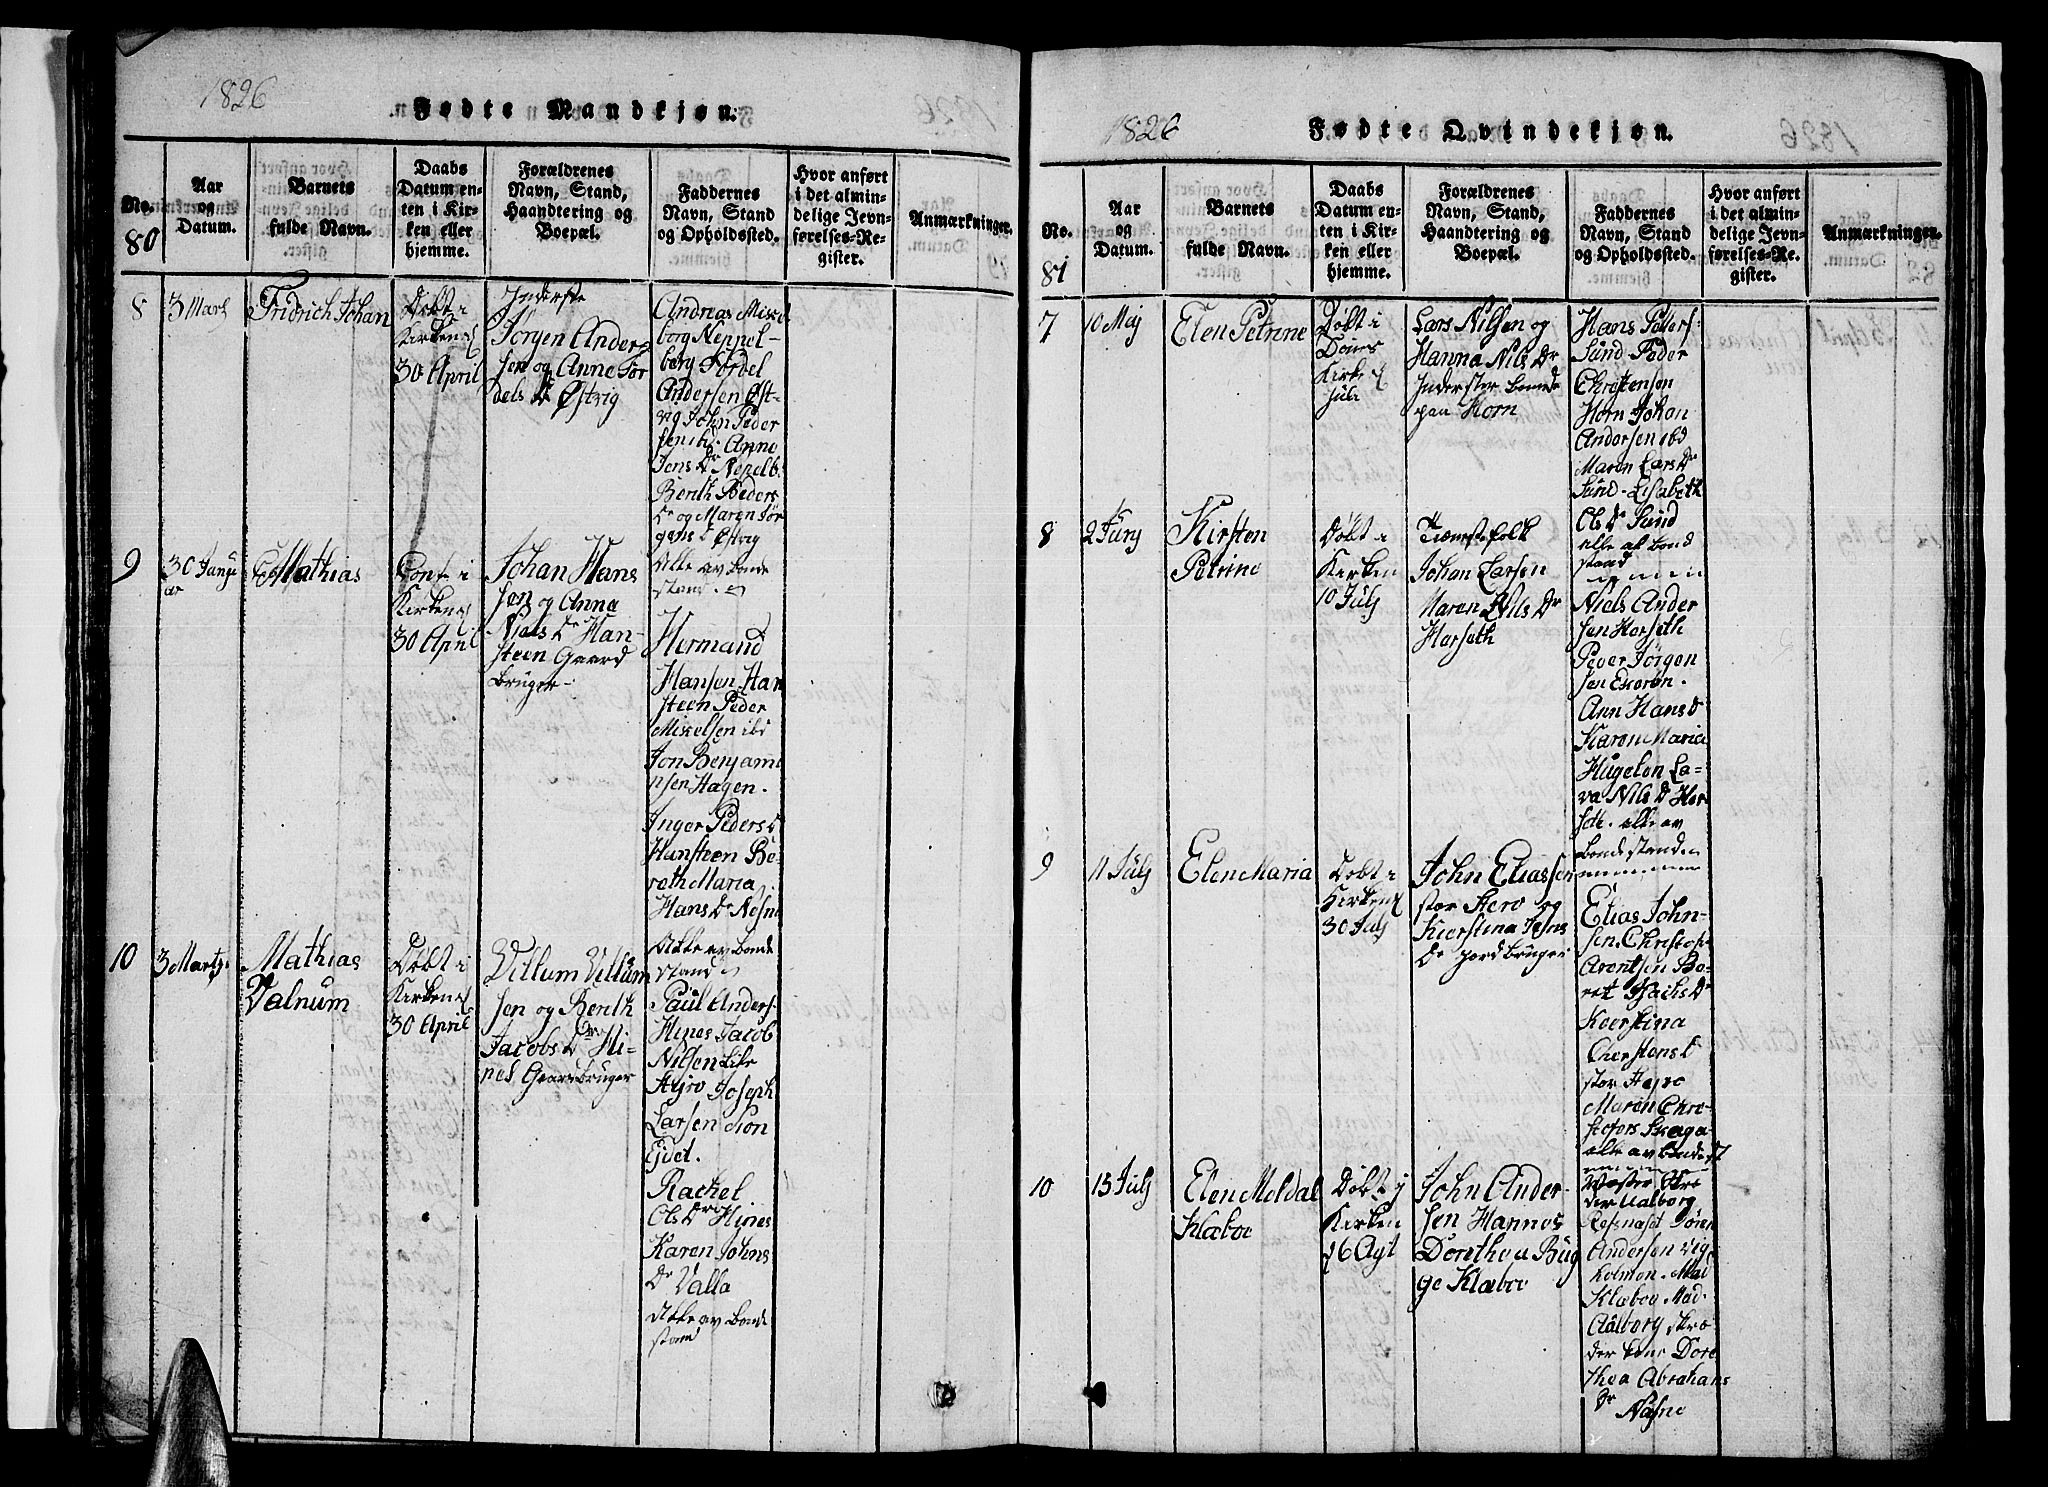 1826
Fødte Mandkjøn.
No.
80
Aar
og
Datum.
Barnets
fulde Navn.
Daabs
Datum en-
ten i Kir-
ken eller
hjemme.
Forældrenes
Navn, Stand,
Haandtering og
Boepæl.
Faddernes
Navn, Stand
og Opholdssted.
Hvor anført
i det almin-
delige Jevn-
førelses-Re-
gister.
Anmærkninger.
8
3 Marts
Fridrich Johan
Døbt i
Kirken
30 April
Inderste
Jørgen Ander
sen og Anne Tør
dels Dr Østvig
Andreas Mikel
borg Neppel-
berg Tørdel
Andersen Øst-
vig John Peder
sen ibd. Anne
Jens Dr Nepelb.
Berith Peders
Dr og Maren Jør
gens D Østvig
Alle av bonde
stand.
9
30 Janu
ar
Mathias
Conf i
Kirken
30 April
Johan Hans
sen og Anna
Niels Dr Han-
steen Gaard
bruger
Hermand
Hansen Han
steen Peder
Mikelsen ibd
Jon Benjami
nsen Hagen.
Inger Peders D
Hansteen Be-
reth Maria
Hans Dr Nøsn
Alle av bonde
stand
10
3 Marts
Mathias
Valnum
Døbt i
Kirken
30 April
Villum Villum
sen og Berith
Jacobs Dr Hi-
nes Gaardbruger
Paul Anders.
Hines Jacob
Nilsen Lille
Joseph
Larsen
Ejdet.
Rachel
Ols Dr Hines
Karen Johns
Dr Valla
Alle av bonde
stand
1826
Fødte Qvindekjøn.
No.
81
Aar
og
Datum.
Barnets
fulde Navn.
Daabs
Datum en-
ten i Kir-
ken eller
hjemme.
Forældrenes
Navn, Stand,
Haandtering og
Boepæl.
Faddernes
Navn, Stand
og Opholdssted.
Hvor anført
i det almin-
delige Jevn-
førelses-Re-
gister.
Anmærkninger.
7
10 Maj
Elen Petrine
Døbt i
Dønes
Kirke
Juli
Lars Nilsen og
Hanna Nils Dr
Inderster boende
paa Horn
Hans Peters
Sund Peder
Christensen
Horn Johan
Andersen ibd
Maren Lars Dr
Sund Elisabeth
Ols Dr Sund
alle af bond
stand
8
2 Junj
Kirsten
Petrine
Døbt i
Kirken
10 Julj
Tienestefolk
Johan Larsen
Maren Nils Dr
Horseth
Niels Ander
sen Horseth
Peder Jørgen
sen
Ann Hans D
Karen Maria
Hugelen La-
va Nils D Hor
seth. alle av
bonde stand
9
11 Julj
Elen Maria
Døbt i
Kirken
30 Julj
John Eliassen
stor og
Kierstina Isahs
Dr jordbruger
Elias John-
sen. Christof
Arentsen Be-
ret Isachs Dr
Keerstina
Cherstens D
stor
Maren Chri-
stofers
alle av bondest
10
15 Julj
Elen Meldal
Klæboe
Døbt j
Kirken
16 Agt
John Ander-
sen Hannes
Dorethea Bug
ge Klæboe
Skræ
der Aalborg
Refsnæst Søren
Andersen Vig
holmen. Mad
Klæboe Mad.
Aalborg skræ
der Dore
thea Abrahams
Dr Næsne